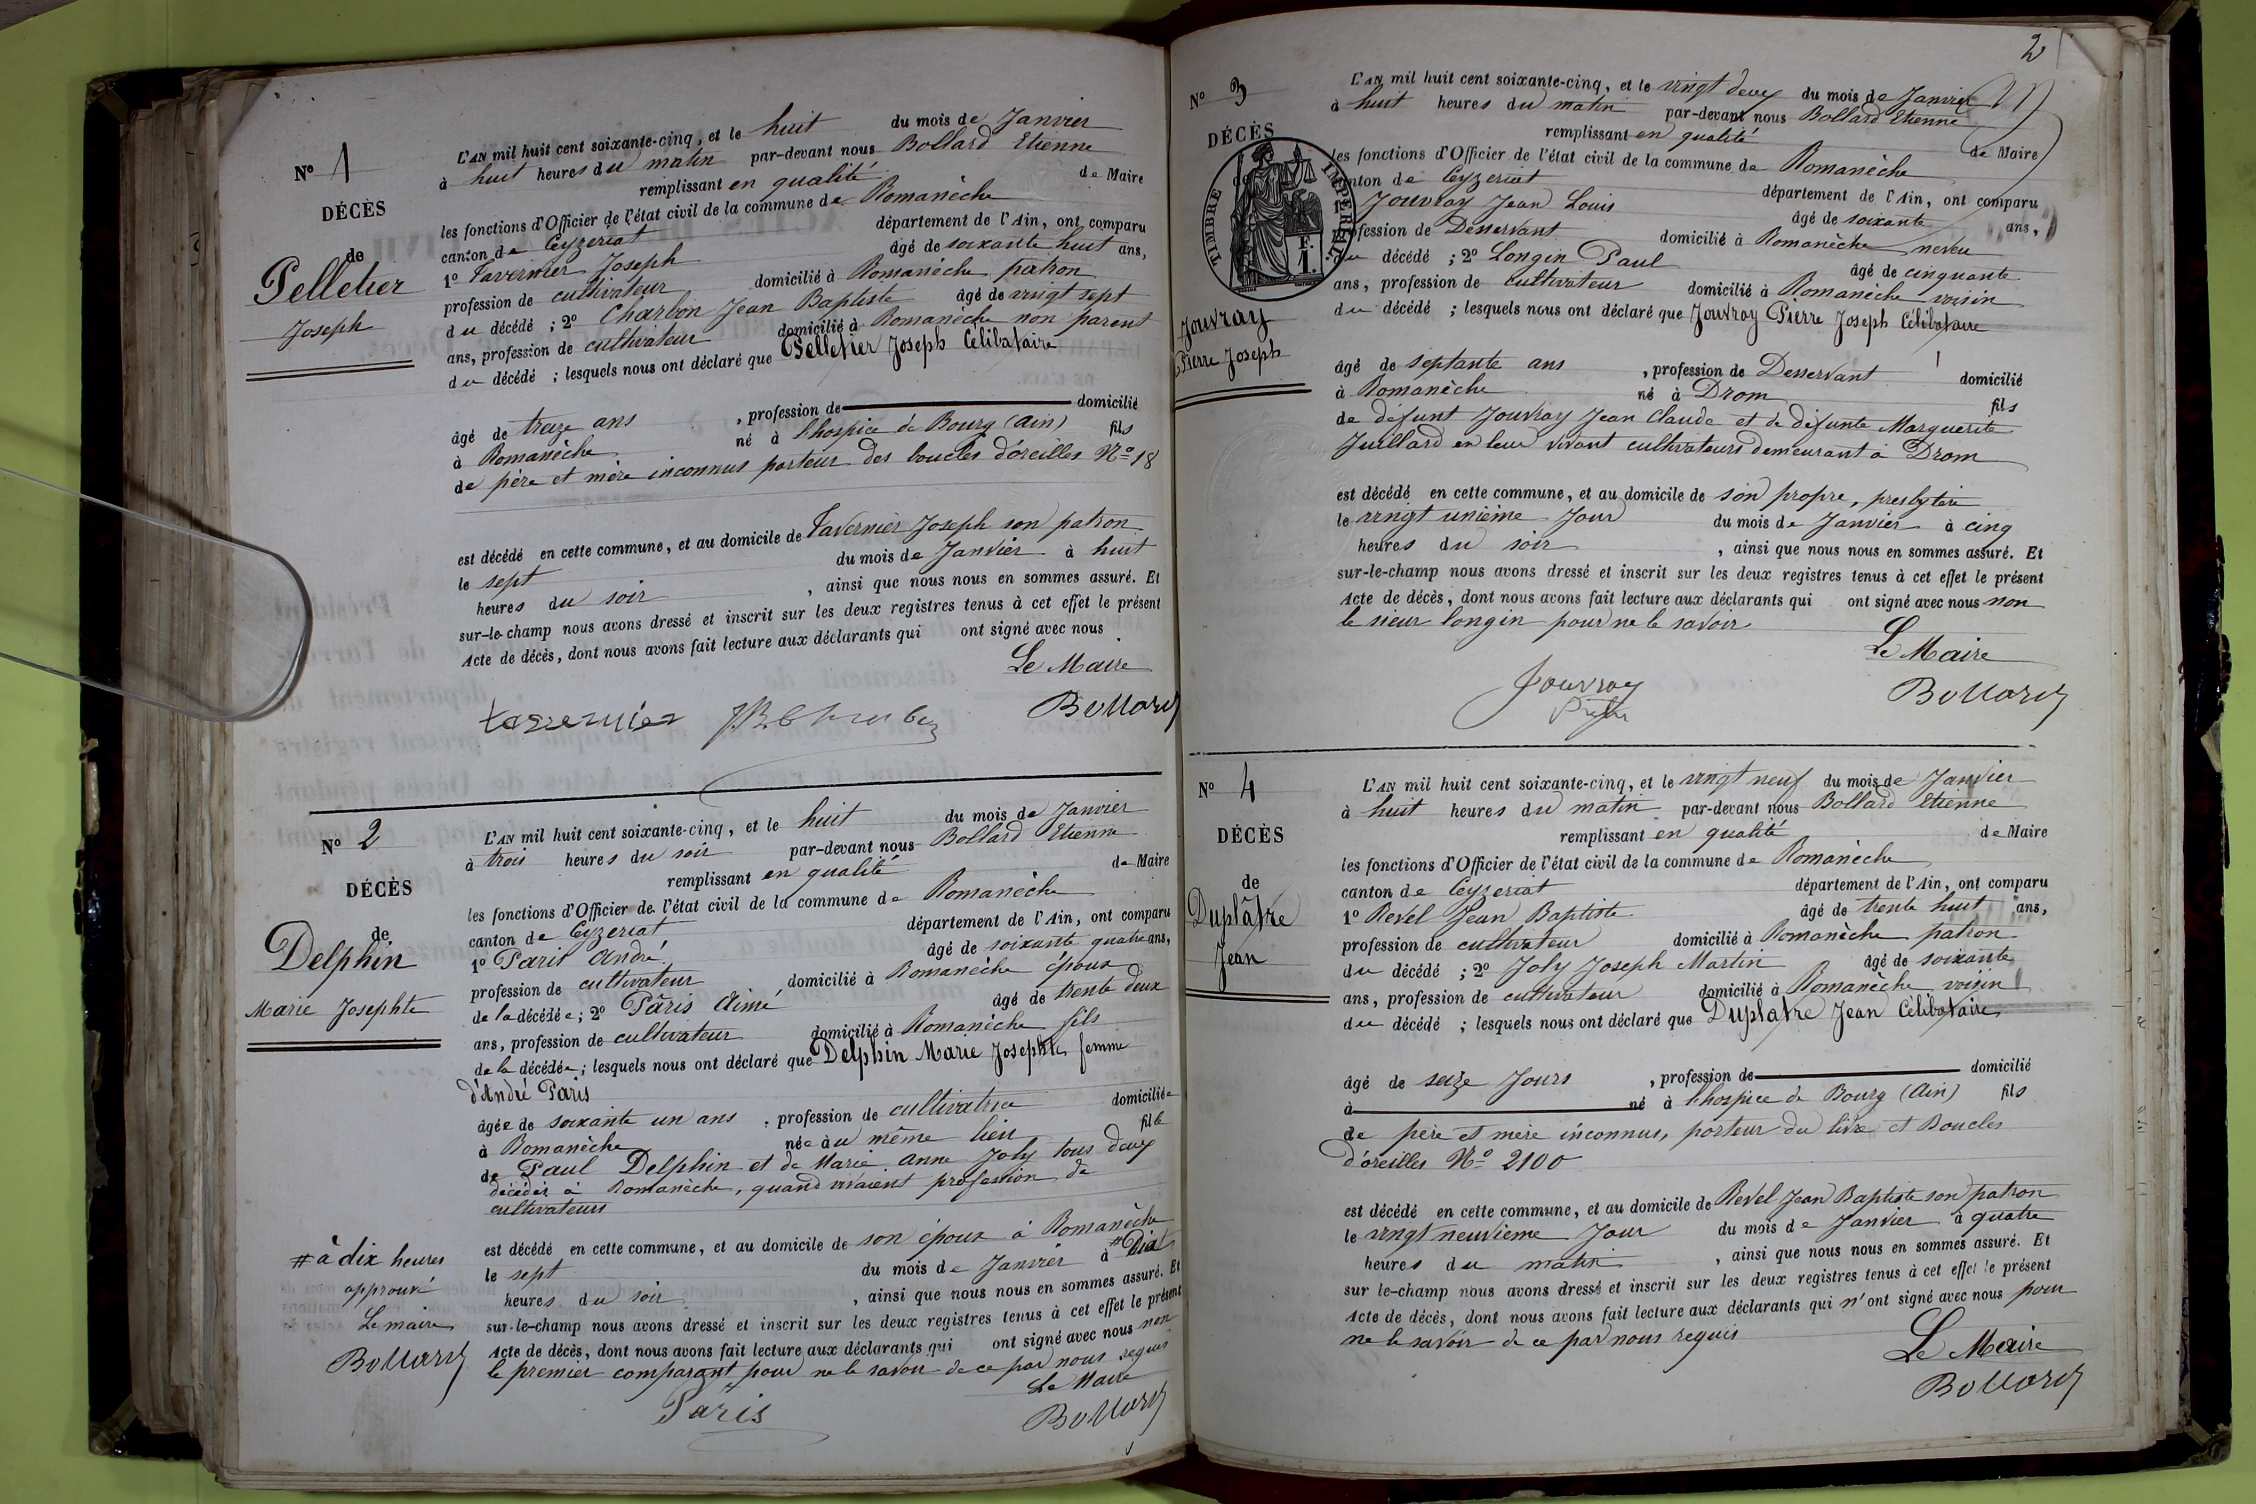 N° 1
DÉCÈS
de
Pelletier
Joseph
L'AN mil huit cent soixante-cinq, et le huit du mois de Janvier
à huit heures du matin par-devant nous Bollard Etienne
remplissant en qualité de Maire
les fonctions d'Officier de l'état civil de la commune de Romanèche
canton de Ceyzeriat département de l'Ain, ont comparu
1° Tavernier Joseph âgé de soixante huit ans,
profession de cultivateur domicilié à Romanèche patron
du décédé ; 2° Charbon Jean Baptiste âgé de vingt sept
ans, profession de cultivateur domicilié à Romanèche non parent
du décédé ; lesquels nous ont déclaré que Pelletier Joseph Célibataire
âgé de treize ans , profession de domicilié
à Romanèche né à l'hospice de Bourg (Ain) fils
de père et mère inconnus porteur des boucles d'oreilles N° 18
est décédé en cette commune, et au domicile de Tavernier Joseph son patron
le sept du mois de Janvier à huit
heures du soir , ainsi que nous nous en sommes assuré. Et
sur-le-champ nous avons dressé et inscrit sur les deux registres tenus à cet effet le présent
Acte de décès, dont nous avons fait lecture aux déclarants qui ont signé avec nous
Le Maire
Bollard
N° 2
DÉCÈS
de
Delphin
Marie Josephte
L'AN mil huit cent soixante-cinq, et le huit du mois de Janvier
à trois heures du soir par-devant nous Bollard Etienne
remplissant en qualité de Maire
les fonctions d'Officier de l'état civil de la commune de Romanèche
canton de Ceyzeriat département de l'Ain, ont comparu
1° Paris André âgé de soixante quatre ans,
profession de cultivateur domicilié à Romanèche époux
de la décédée ; 2° Pâris Aimé âgé de trente deux
ans, profession de cultivateur domicilié à Romanèche fils
de la décédée ; lesquels nous ont déclaré que Delphin Marie Josephte femme
d'André Paris
âgée de soixante un ans , profession de cultivatrice domiciliée
à Romanèche née au même lieu fille
de Paul Delphin et de Marie Anne Joly tous deux
décédés à Romanèche, quand vivaient profession de
cultivateurs
est décédé en cette commune, et au domicile de son époux à Romanèche
le sept du mois de Janvier à # Dix
heures du soir , ainsi que nous nous en sommes assuré. Et
sur-le-champ nous avons dressé et inscrit sur les deux registres tenus à cet effet le présent
Acte de décès, dont nous avons fait lecture aux déclarants qui ont signé avec nous non
le premier comparant pour ne le savoir de ce par nous requis
Le Maire
Pâris
Bollard
# à dix heures
approuvé
Le maire
Bollard
2
N° 3
DÉCÈS
de
TIMBRE IMPERIAL
1 F.
Jouvray
Pierre Joseph
L'AN mil huit cent soixante-cinq, et le vingt deux du mois de Janvier
à huit heures du matin par-devant nous Bollard Etienne
remplissant en qualité de Maire
les fonctions d'Officier de l'état civil de la commune de Romanèche
canton de Ceyzeriat département de l'Ain, ont comparu
1° Jouvray Jean Louis âgé de soixante ans,
profession de Desservant domicilié à Romanèche neveu
du décédé ; 2° Longin Paul âgé de cinquante
ans, profession de cultivateur domicilié à Romanèche voisin
du décédé ; lesquels nous ont déclaré que Jouvray Pierre Joseph Célibataire
âgé de septante ans , profession de Desservant domicilié
à Romanèche né à Drom fils
de défunt Jouvray Jean Claude et de défunte Marguerite
Juillard en leur vivant cultivateurs demeurant à Drom
est décédé en cette commune, et au domicile de son propre, presbytère
le vingt unième Jour du mois de Janvier à cinq
heures du soir , ainsi que nous nous en sommes assuré. Et
sur-le-champ nous avons dressé et inscrit sur les deux registres tenus à cet effet le présent
Acte de décès, dont nous avons fait lecture aux déclarants qui ont signé avec nous non
le sieur longin pour ne le savoir
Le Maire
Jouvray
Bollard
N° 4
DÉCÈS
de
Duplâtre
Jean
L'AN mil huit cent soixante-cinq, et le vingt neuf du mois de Janvier
à huit heures du matin par-devant nous Bollard Etienne
remplissant en qualité de Maire
les fonctions d'Officier de l'état civil de la commune de Romanèche
canton de Ceyzeriat département de l'Ain, ont comparu
1° Revel Jean Baptiste âgé de trente huit ans,
profession de cultivateur domicilié à Romanèche patron
du décédé ; 2° Joly Joseph Martin âgé de soixante
ans, profession de cultivateur domicilié à Romanèche voisin
du décédé ; lesquels nous ont déclaré que Duplatre Jean Célibataire
âgé de seize Jours , profession de domicilié
à né à l'hospice de Bourg (Ain) fils
de père et mère inconnus, porteur du livre et Boucles
d'oreilles N° 2100
est décédé en cette commune, et au domicile de Revel Jean Baptiste son patron
le vingt neuvième Jour du mois de Janvier à quatre
heures du matin , ainsi que nous nous en sommes assuré. Et
sur le-champ nous avons dressé et inscrit sur les deux registres tenus à cet effet le présent
Acte de décès, dont nous avons fait lecture aux déclarants qui n'ont signé avec nous pour
ne le savoir de ce par nous requis
Le Maire
Bollard